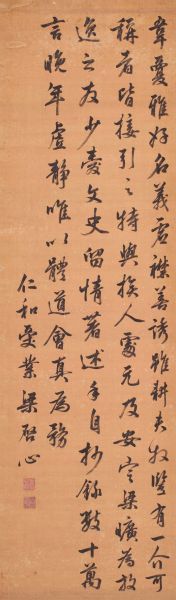 韋敻雅好名義虛襟善誘雖耕夫牧豎有一介可
稱者皆接引之特與族人處元及安定梁曠為放
逸之友少愛文史留情著述手自抄錄數十萬
言晚年虛靜唯以體道會真為務
仁和受業梁啓心